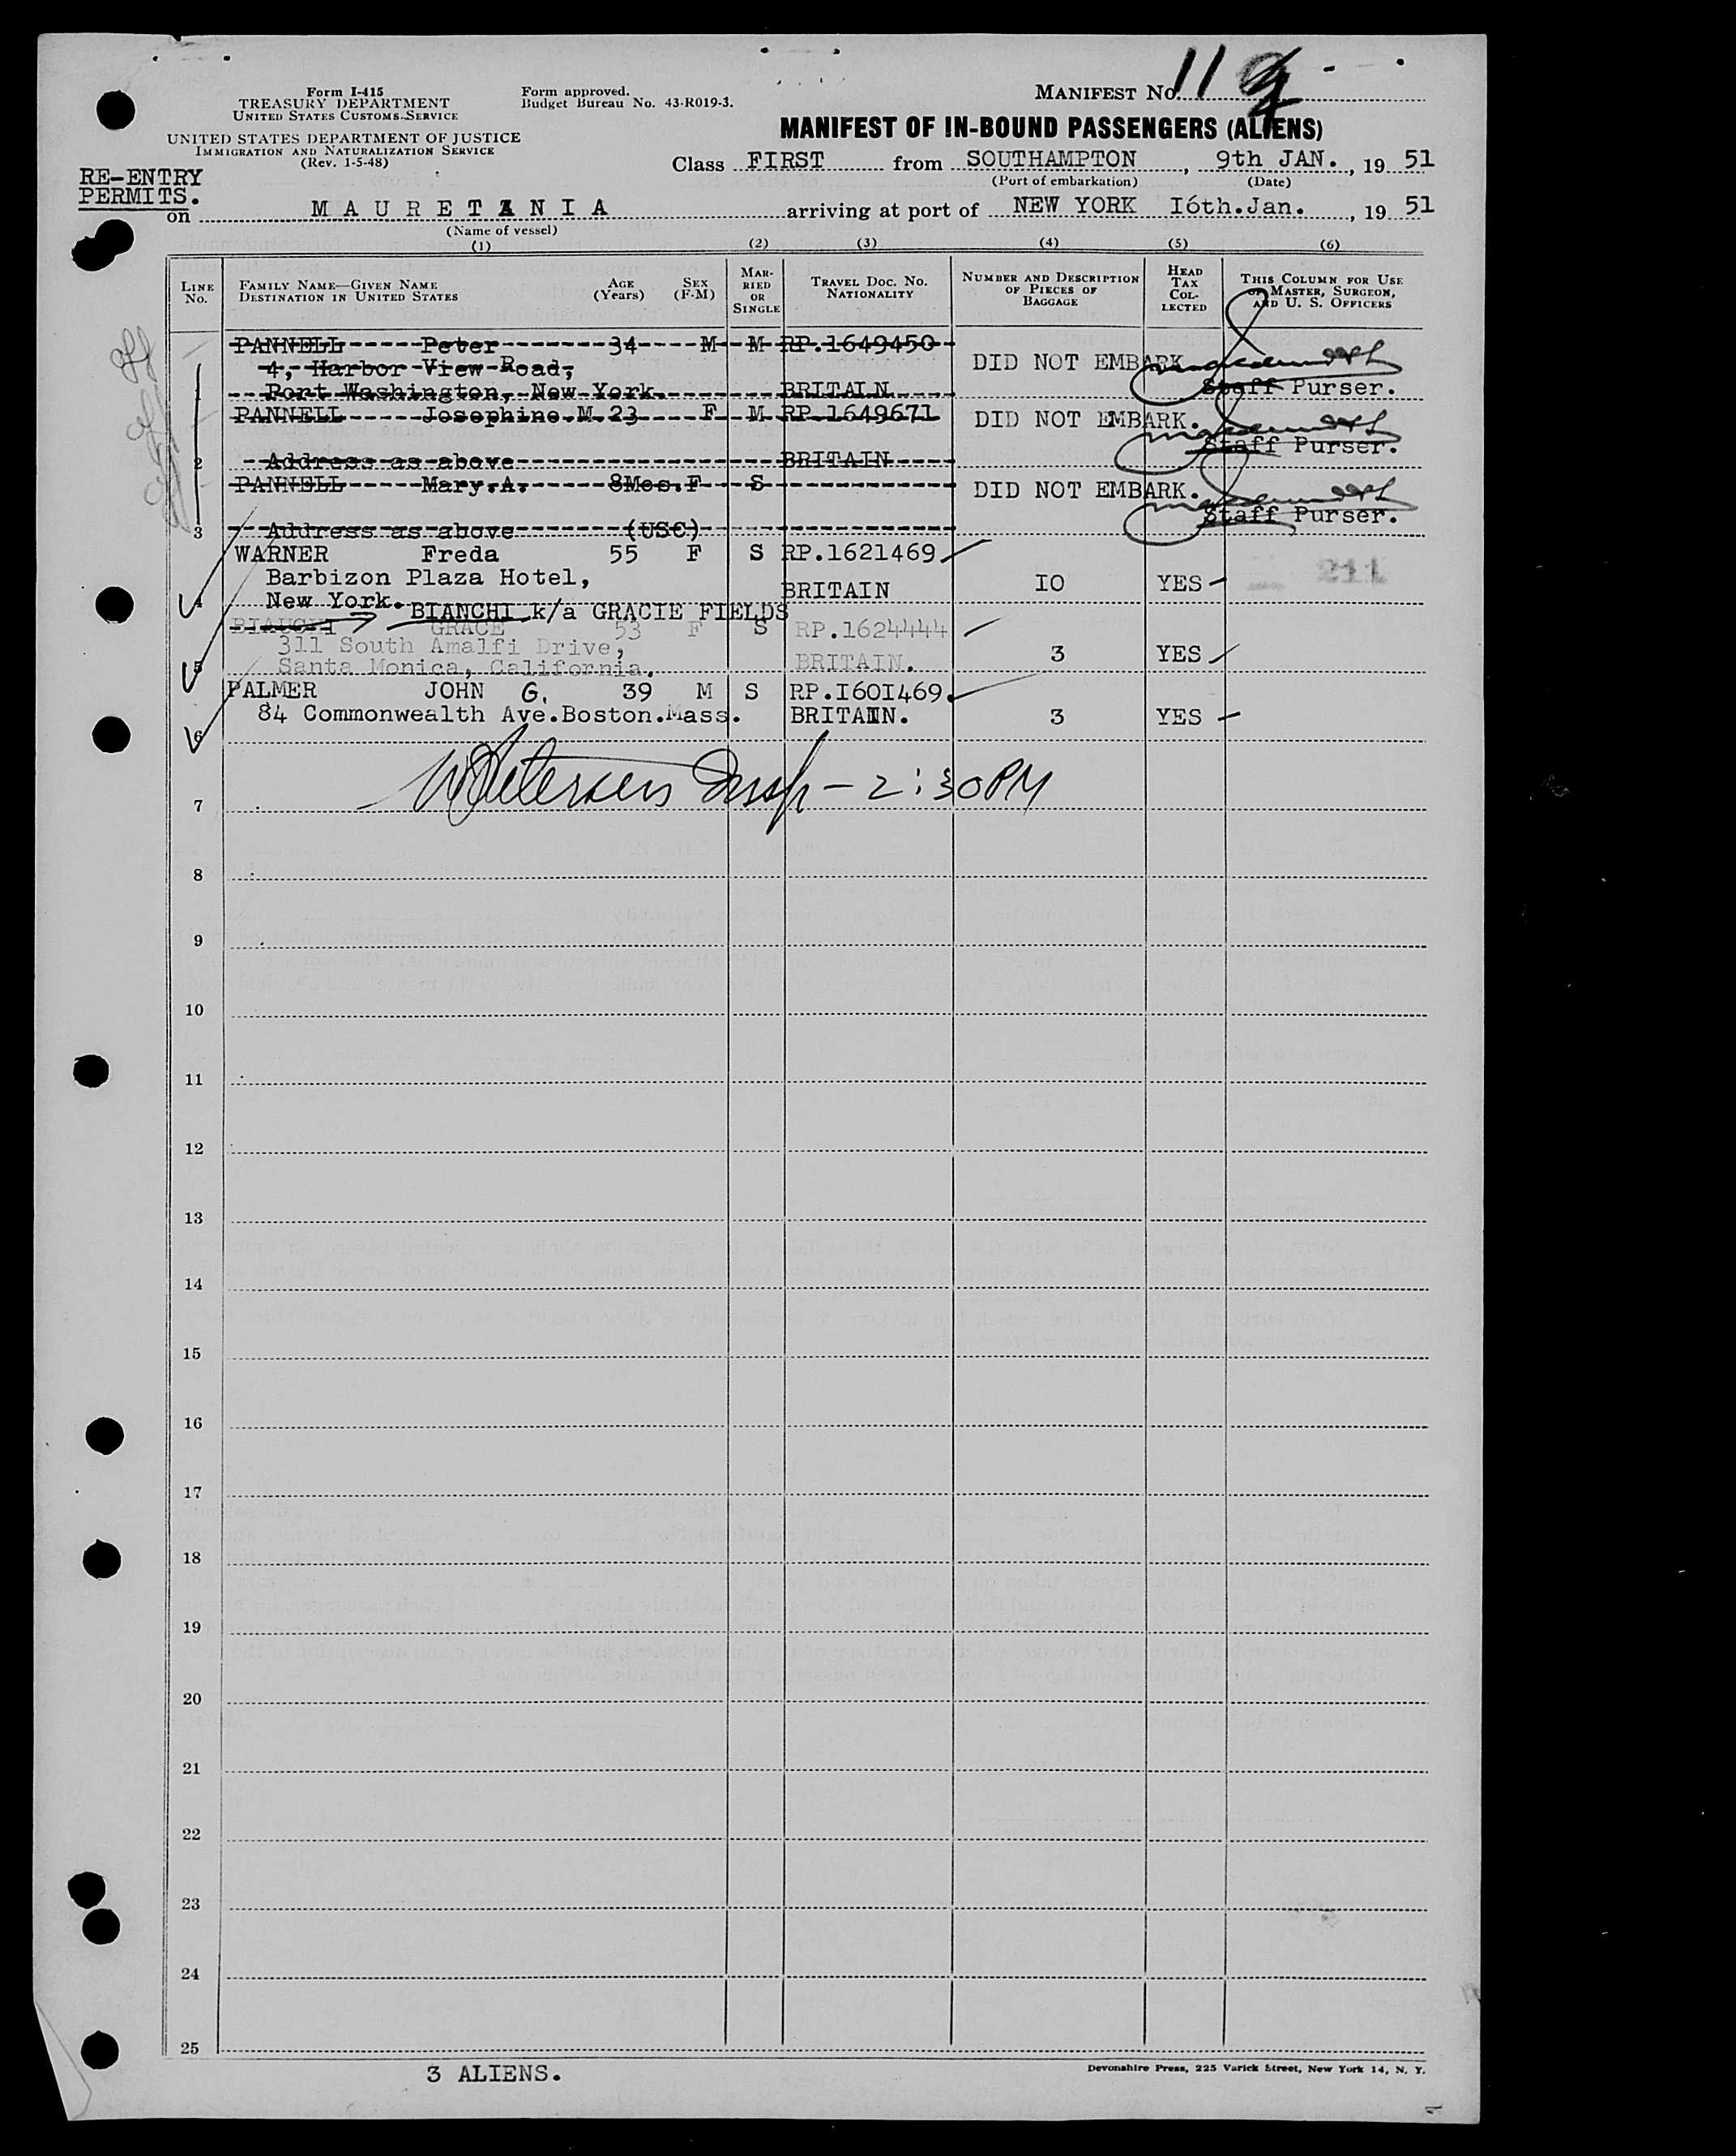 MANIFEST NO. 11
Form I-415
TREASURY DEPARTMENT
UNITED STATES CUSTOMS SERVICE
Form approved.
Budget Bureau No. 43-R019-3.
UNITED STATES DEPARTMENT OF JUSTICE
IMMIGRATION AND NATURALIZATION SERVICE
(Rev. 1-5-48)
MANIFEST OF IN-BOUND PASSENGERS (ALIENS)
Class FIRST from SOUTHAMPTON, 9th JAN., 19 51
(Port of embarkation) (Date)
RE-ENTRY
PERMITS.
on MAURETANIA arriving at port of NEW YORK I6th.Jan., 19 51
(Name of vessel)
(1) (2) (3) (4) (5) (6)
LINE No.
FAMILY NAME—GIVEN NAME
DESTINATION IN UNITED STATES
AGE (Years)
SEX (F-M)
MARRIED OR SINGLE
TRAVEL DOC. NO.
NATIONALITY
NUMBER AND DESCRIPTION OF PIECES OF BAGGAGE
HEAD TAX COLLECTED
THIS COLUMN FOR USE OF MASTER, SURGEON, AND U. S. OFFICERS
PANNELL Peter 34 M M RP.1649450
4, Harbor View Road, DID NOT EMBARK
1 Port Washington, New York. BRITAIN Staff Purser.
PANNELL Josephine.M. 23 F M RP.1649671 DID NOT EMBARK.
Staff Purser.
2 Address as above BRITAIN
PANNELL Mary.A. 8Mos. F S DID NOT EMBARK.
Staff Purser.
3 Address as above (USC)
WARNER Freda 55 F S RP.1621469
Barbizon Plaza Hotel, BRITAIN IO YES 211
4 New York.
BIANCHI k/a GRACIE FIELDS
BIAUCHI GRACE 53 F S RP.1624444
311 South Amalfi Drive, 3 YES
5 Santa Monica, California. BRITAIN.
PALMER JOHN G. 39 M S RP.I60I469.
84 Commonwealth Ave.Boston.Mass. BRITAIN. 3 YES
6
Insp - 2:30 PM
7
8
9
10
11
12
13
14
15
16
17
18
19
20
21
22
23
24
25
3 ALIENS.
Devonshire Press, 225 Varick Street, New York 14, N. Y.